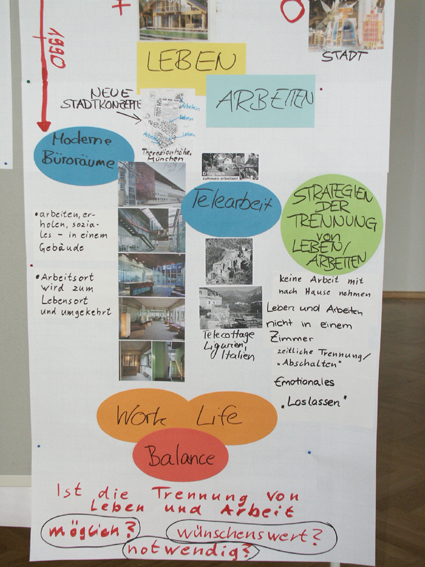 1990
STADT
LEBEN
ARBEITEN
NEUE
STADTKONZEPTE
Arbeiten
Leben
Arbeiten
Leben
Theresienhöhe,
München
Moderne
Büroräume
Telearbeit
STRATEGIEN
DER
TRENNUNG
von
LEBEN/
ARBEITEN
•arbeiten, er-
holen, sozia-
les – in einem
Gebäude
•Arbeitsort
wird zum
Lebensort
und umgekehrt
Telecottage
Ligurien,
Italien
keine Arbeit mit
nach Hause nehmen
Leben und Arbeiten
nicht in einem
Zimmer
zeitliche Trennung/
„Abschalten"
Emotionales
„Loslassen"
Work Life
Balance
Ist die Trennung von
Leben und Arbeit
möglich? wünschenswert?
notwendig?